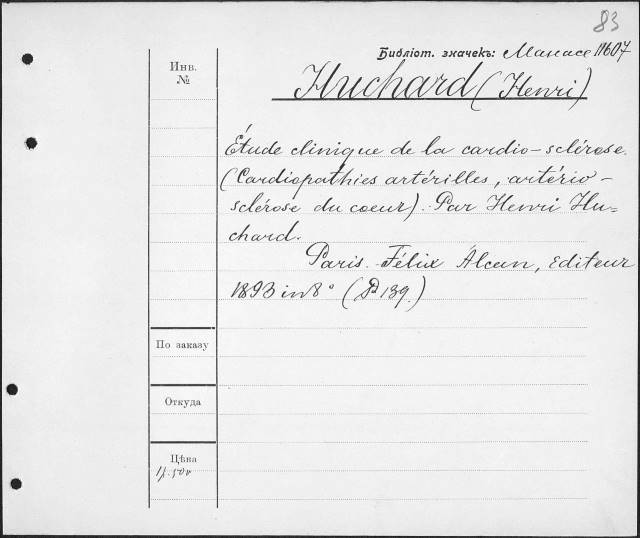 83
Библіот. значекъ: Манасе 11607
Инв.
№
Huchard (Henri)
Étude clinique de la cardio-sclérose.
(Cardiopathies artérilles, artério-
sclérose du coeur). Par Henri Hu=
chard.
Paris. Félix Alcan, Editeur
1893 in 8° (P 139.)
По заказу
Откуда
Цѣна